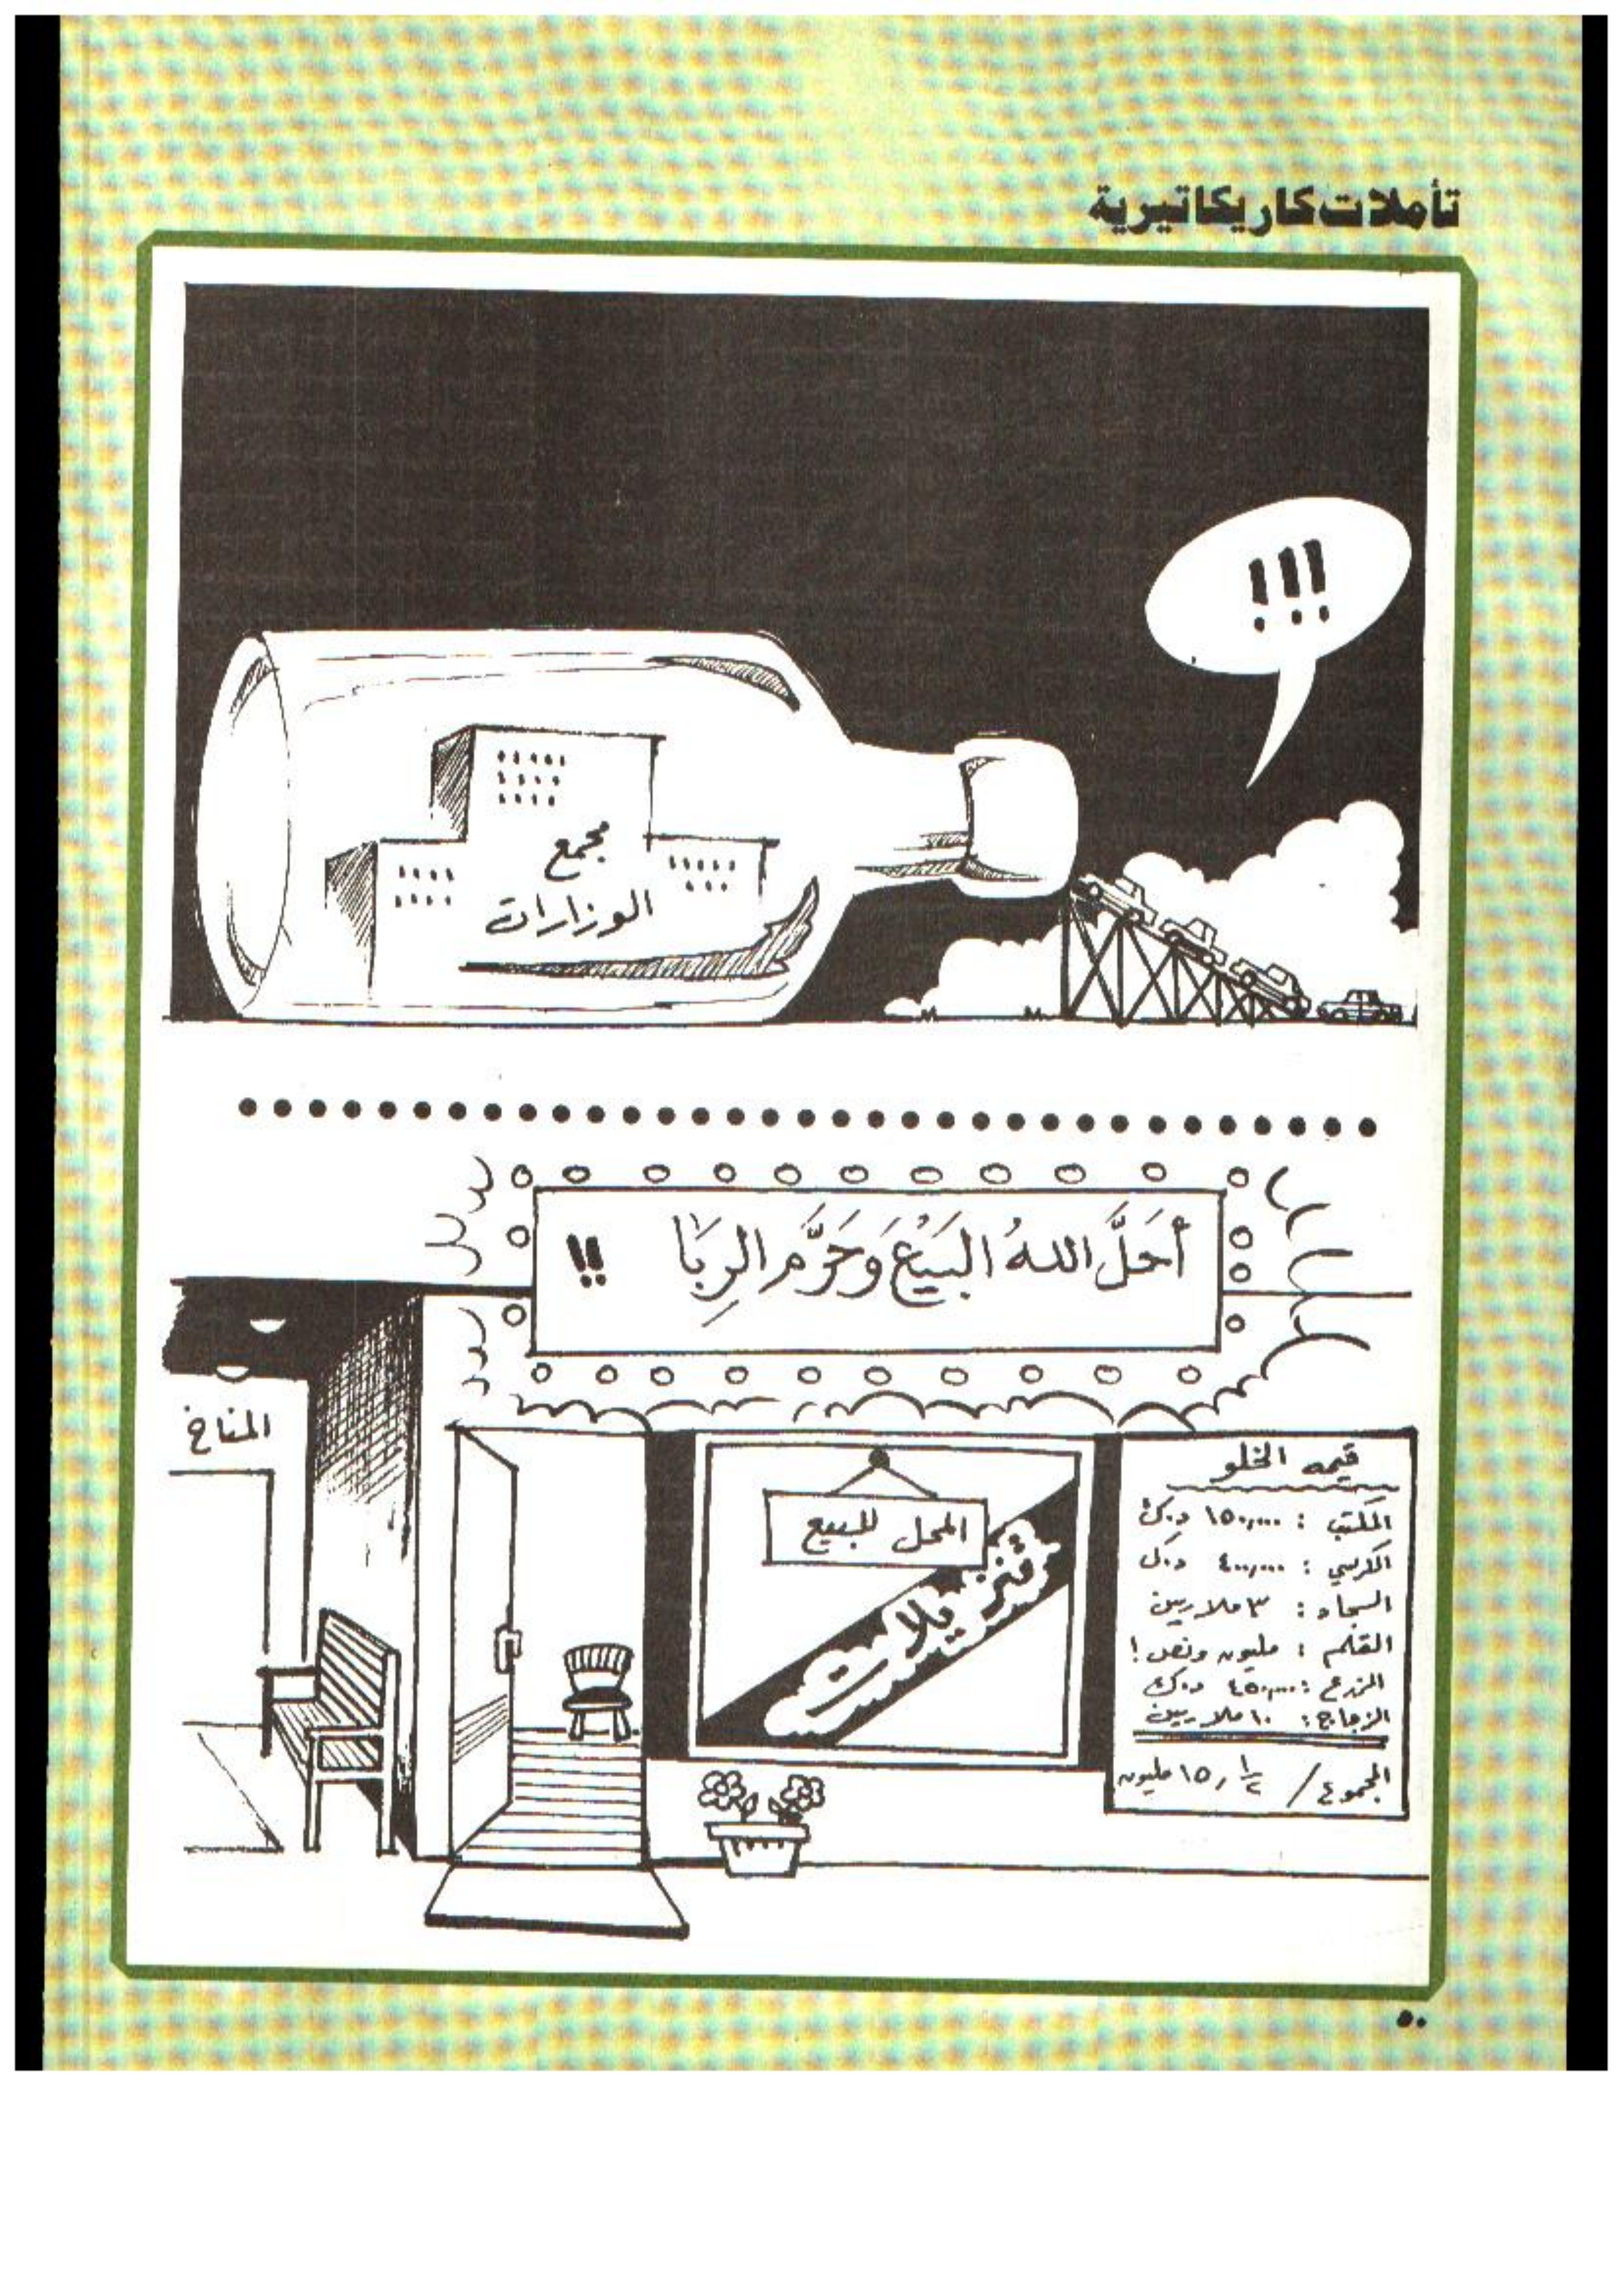 تأملات كاريكاتيرية
!!!
مجمع
الوزارات
أَحَلَّ اللهُ البَيْعَ وَحَرَّم الرِبَا !!
المناخ
المحل للبيع
تنزيلات
قيمه الخلو
المكتب : ١٥٠,٠٠٠ د.ك
الكرسي : ٤٠٠,٠٠٠ د.ك
السجاد : ٣ ملايين
القلم : مليون ونص !
المزرع : ٤٥٠,٠٠٠ د.ك
الزجاج : ١٠ ملايين
المجموع / ١٥,١/٢ مليون
٥٠